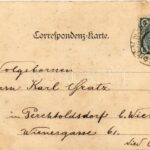 Correspondenz-Karte.
Wolgeboren
Herrn Karl Gratz
in Perchtoldsdorf b. Wien
Wienergasse 61.